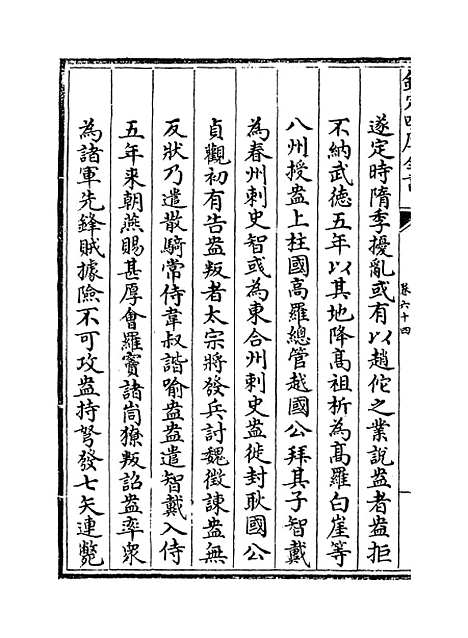 欽定四庫全書
卷六十四
遂定時隋季擾亂或有以趙佗之業說盎者盎拒
不納武徳五年以其地降髙祖析為髙羅白崖等
八州授盎上柱國高羅總管越國公拜其子智戴
為春州刺史智彧為東合州刺史盎徙封耿國公
貞觀初有告盎叛者太宗將發兵討魏徵諫盎無
反狀乃遣散騎常侍韋叔諧喻盎盎遣智戴入侍
五年来朝燕賜甚厚會羅竇諸峝獠叛詔盎率衆
為諸軍先鋒賊據險不可攻盎持弩發七矢連斃